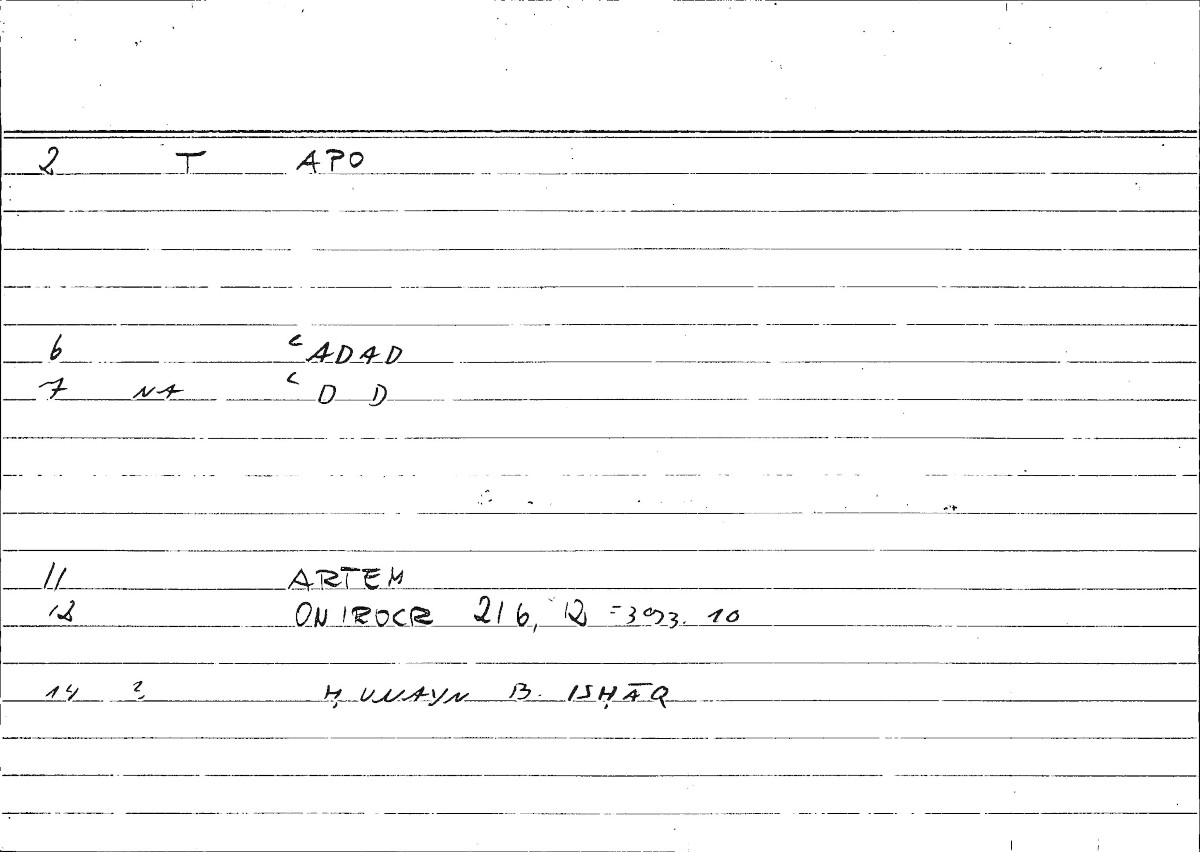 2 T APO
6 ʿADAD
7 NA ʿD D
11 ARTEM
12 ONIROCR 216, 12 = 393. 10
14 2 ḤUNAYN B. ISḤĀQ